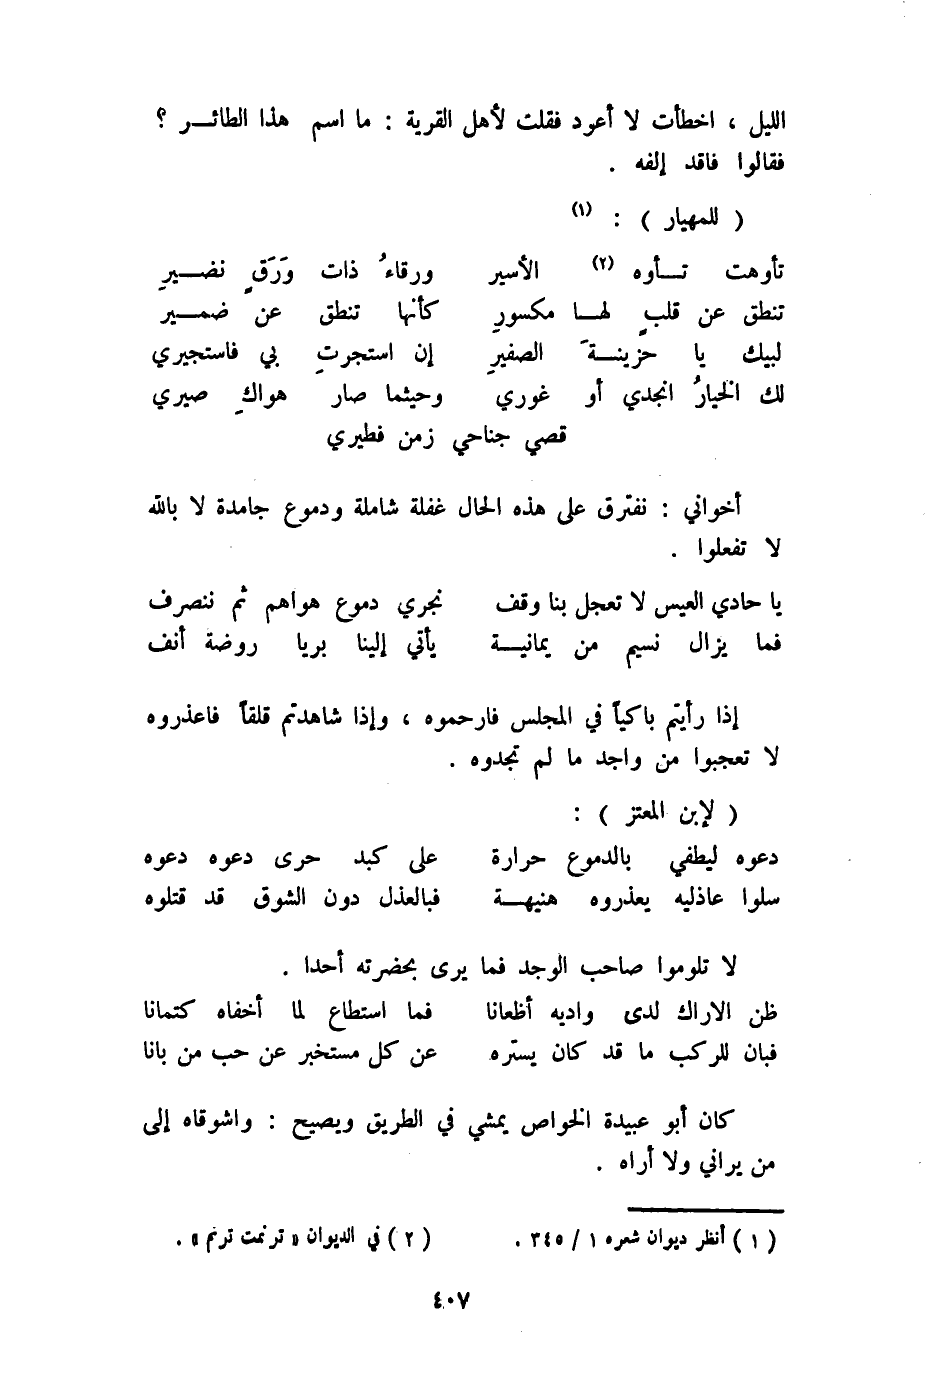 الليل ، اخطأت لا أعود فقلت لأهل القرية : ما اسم هذا الطائــر ؟
فقالوا فاقد إلفه .
( للمهيار ) : (١)
تأوهت تــأوه (٢) الأسير ورقاءُ ذات وَرَقٍ نضــيرِ
تنطق عن قلبٍ لهــا مكسورِ كأنها تنطق عن ضمــير
لبيك يا حزينــةَ الصفيرِ إن استجرتِ بي فاستجيري
لك الخيارُ انجدي أو غوري وحيثما صار هواكِ صيري
قصي جناحي زمن فطيري
أخواني : نفترق على هذه الحال غفلة شاملة ودموع جامدة لا بالله
لا تفعلوا .
يا حادي العيس لا تعجل بنا وقف نجري دموع هواهم ثم ننصرف
فما يزال نسيم من يمانيــة يأتي إلينا بريا روضة أنف
إذا رأيتم باكياً في المجلس فارحموه ، وإذا شاهدتم قلقاً فاعذروه
لا تعجبوا من واجد ما لم تجدوه .
( لإبن المعتز ) :
دعوه ليطفي بالدموع حرارة على كبد حرى دعوه دعوه
سلوا عاذليه يعذروه هنيهــة فبالعذل دون الشوق قد قتلوه
لا تلوموا صاحب الوجد فما يرى بحضرته أحدا .
ظن الاراك لدى واديه أظعانا فما استطاع لما أخفاه كتمانا
فبان للركب ما قد كان يستره عن كل مستخبر عن حب من بانا
كان أبو عبيدة الخواص يمشي في الطريق ويصيح : واشوقاه إلى
من يراني ولا أراه .
( ١ ) أنظر ديوان شعره ١ / ٣٤٥ . ( ٢ ) في الديوان « ترنمت ترنم » .
٤٠٧